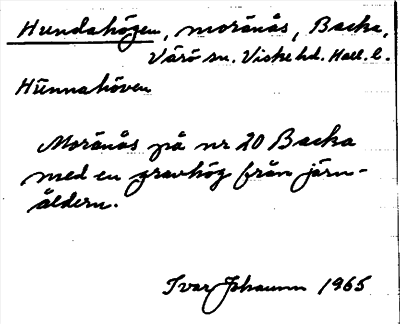 Hundahögen, moränås, Backa,
Värö sn. Viske hd. Hall. l.
Hünnahöven
Moränås på nr 20 Backa
med en gravhög från järn-
åldern.
Ivar Johansson 1965